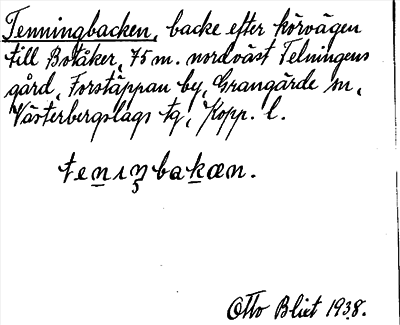 Tenningbacken, backe efter körvägen
till Botåker, 75 m. nordväst Telningens
gård, Forstäppan by, Grangärde sn,
Västerbergslags tg, Kopp. l.
tenıŋbakæn.
Otto Blixt 1938.